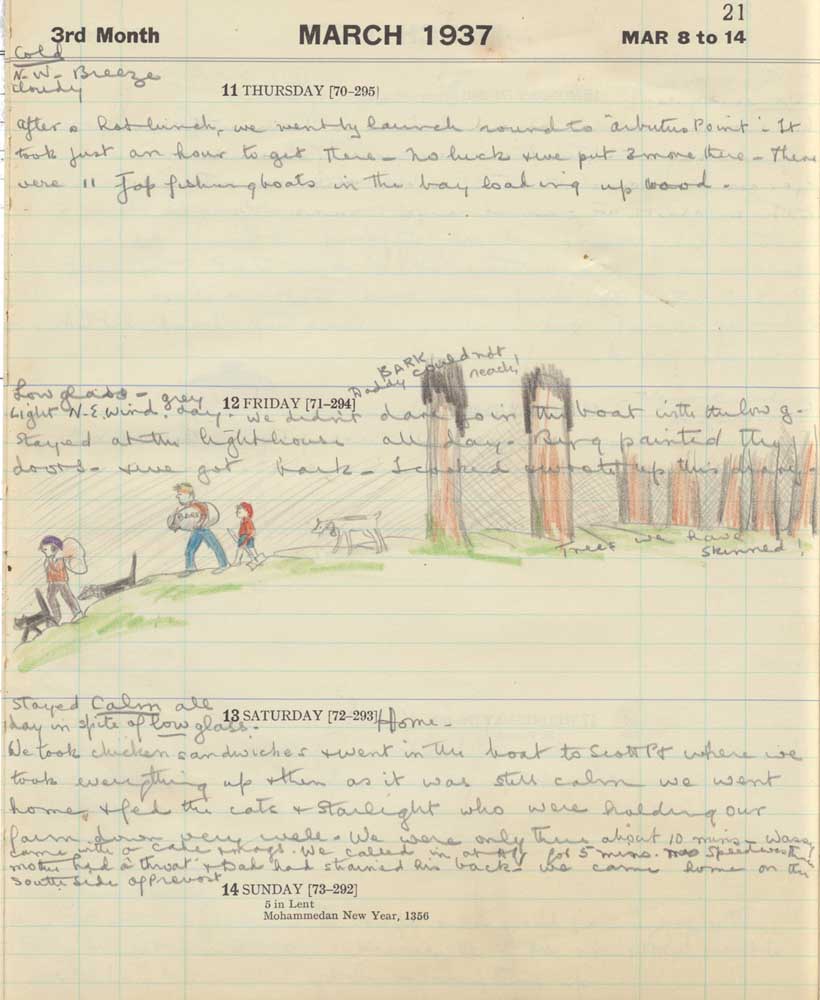 21
3rd Month MARCH 1937 MAR 8 to 14
Cold
N-W- Breeze
Cloudy
11 THURSDAY [70-295]
After a hot lunch, we went by launch round to "Arbutus Point" - It
took just an hour to get there - No luck & we put 3 more there - There
were 11 Jap fishing boats in the bay loading up wood -
BARK
Daddy could not
reach!
Low glass - grey
Light N-E. Wind. day.
12 FRIDAY [71-294]
We didn't dare go in the boat with the low g-
Stayed at the lighthouse all day - painted the
doors - & we got bark - I cooked & wrote up this diary -
BARK
Trees we have
skinned!
Stayed Calm all
day in spite of low glass.
13 SATURDAY [72-293] Home -
We took chicken sandwiches & went in the boat to Scott Pt where we
took everything up & then as it was still calm we went
home, & fed the cats & Starlight who were holding our
farm down very well - We were only there about 10 mins -
came with a cake & mags. We called in at for 5 mins.
mother had a throat & Dad had strained his back - we came home on the
South side of Prevost
14 SUNDAY [73-292]
5 in Lent
Mohammedan New Year, 1356